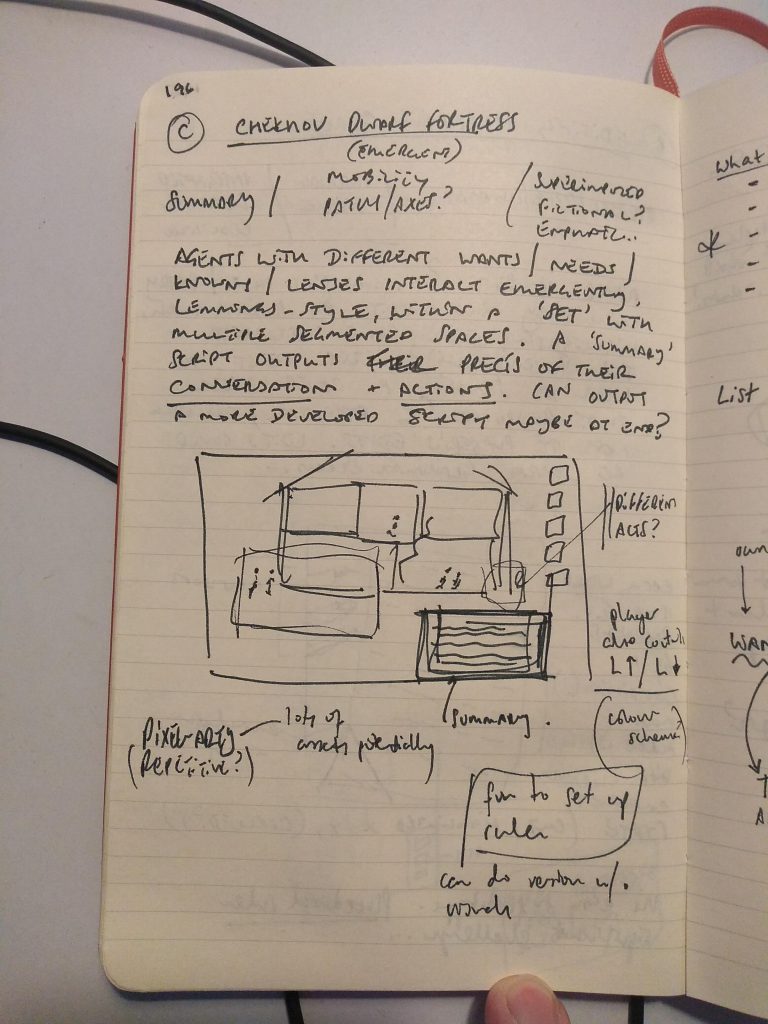 196
C CHEKHOV DWARF FORTRESS
(EMERGENT)
SUMMARY / MOBILITY
PATHS/AXES?
/ SUPERIMPOSED
FICTIONAL?
EMPHATIC..
AGENTS WITH DIFFERENT WANTS/NEEDS/
KNOWNS/LENSES INTERACT EMERGENTLY,
LEMMINGS-STYLE, WITHIN A 'SET' WITH
MULTIPLE SEGMENTED SPACES. A 'SUMMARY'
SCRIPT OUTPUTS THEIR PRECIS OF THEIR
CONVERSATION + ACTIONS. CAN OUTPUT
A MORE DEVELOPED SCRIPT MAYBE AT END?
DIFFERENT
ACTS?
player
also controls
L↑/L↓
SUMMARY.
(colour
scheme?)
PIXEL-ARTY
(REPETITIVE?)
lots of
assets potentially
fun to set up
rules
can do version w/.
words
What
-
-
-
-
-
List
own
↓
WAN
A